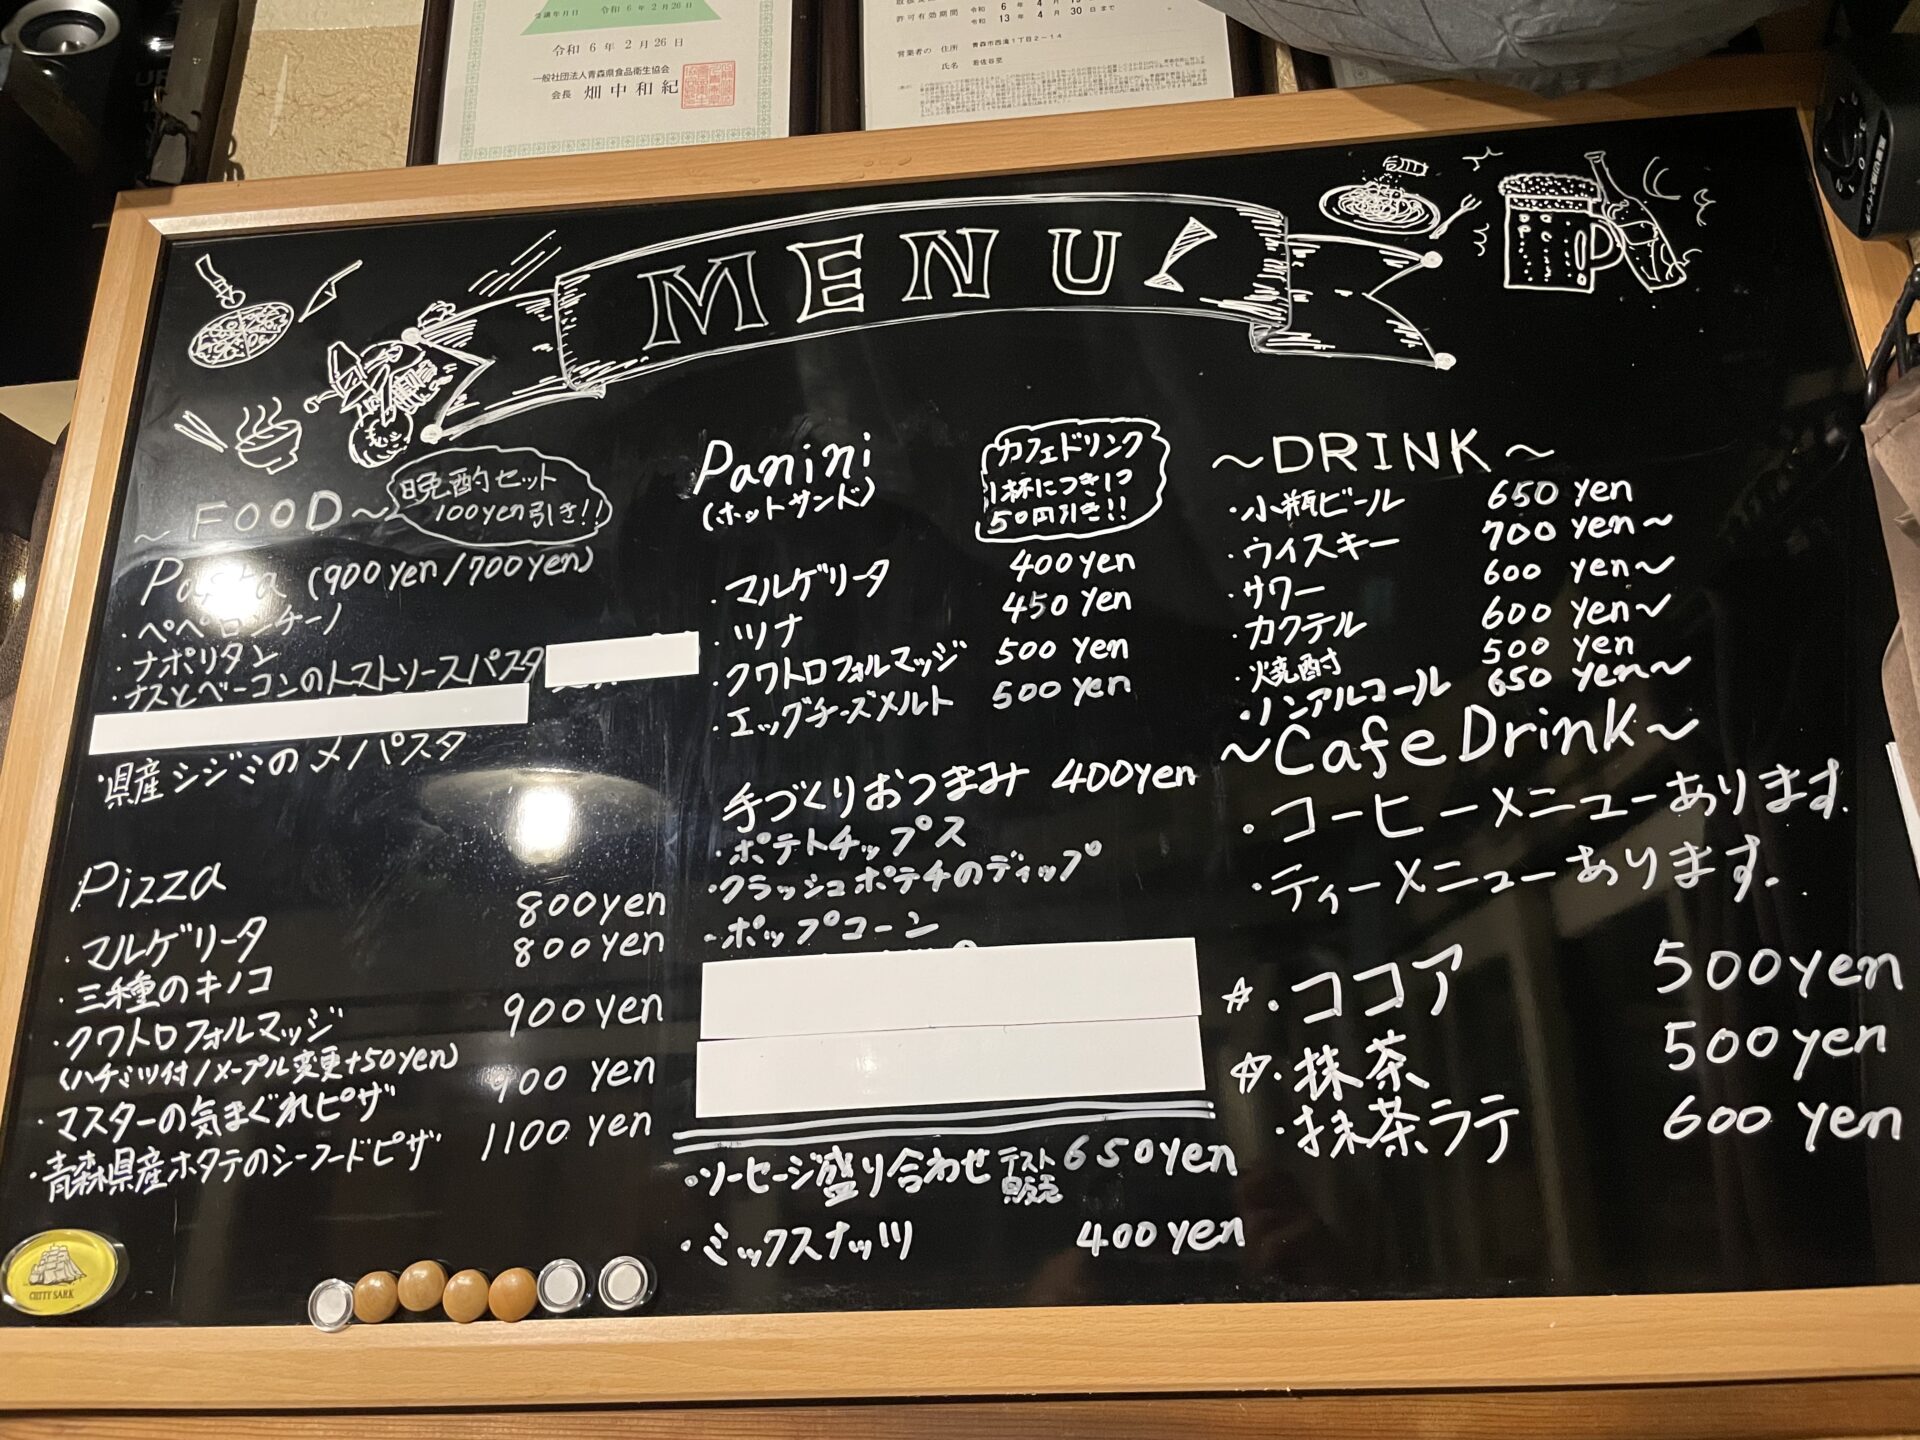 受講年月日 令和6年2月26日
令和 6 年 2 月 26 日
一般社団法人青森県食品衛生協会
会長 畑中和紀
許可有効期間 令和 6 年 4 月
令和 13 年 4 月 30 日まで
営業者の 住所 青森市西滝1丁目2-14
氏名
MENU!
~FOOD~
晩酌セット
100yen引き!!
Pasta (900yen/700yen)
・ペペロンチーノ
・ナポリタン
・ナスとベーコンのトマトソースパスタ
・県産シジミの〆パスタ
Pizza
・マルゲリータ 800yen
・三種のキノコ 800yen
・クワトロフォルマッジ 900yen
(ハチミツ付/メープル変更+50yen)
・マスターの気まぐれピザ 900 yen
・青森県産ホタテのシーフードピザ 1100 yen
CUTTY SARK
Panini
(ホットサンド)
カフェドリンク
1杯につきに
50円引き!!
・マルゲリータ 400yen
・ツナ 450yen
・クワトロフォルマッジ 500 yen
・エッグチーズメルト 500yen
手づくりおつまみ 400yen
・ポテトチップス
・クラッシュポテチのディップ
・ポップコーン
・ソーセージ盛り合わせ テスト販売 650yen
・ミックスナッツ 400yen
~DRINK~
・小瓶ビール 650 yen
・ウイスキー 700 yen~
・サワー 600 yen~
・カクテル 600 yen~
・焼酎 500 yen
・ノンアルコール 650 yen~
~Cafe Drink~
・コーヒーメニューあります.
・ティーメニューあります.
☆・ココア 500yen
☆・抹茶 500yen
・抹茶ラテ 600 yen